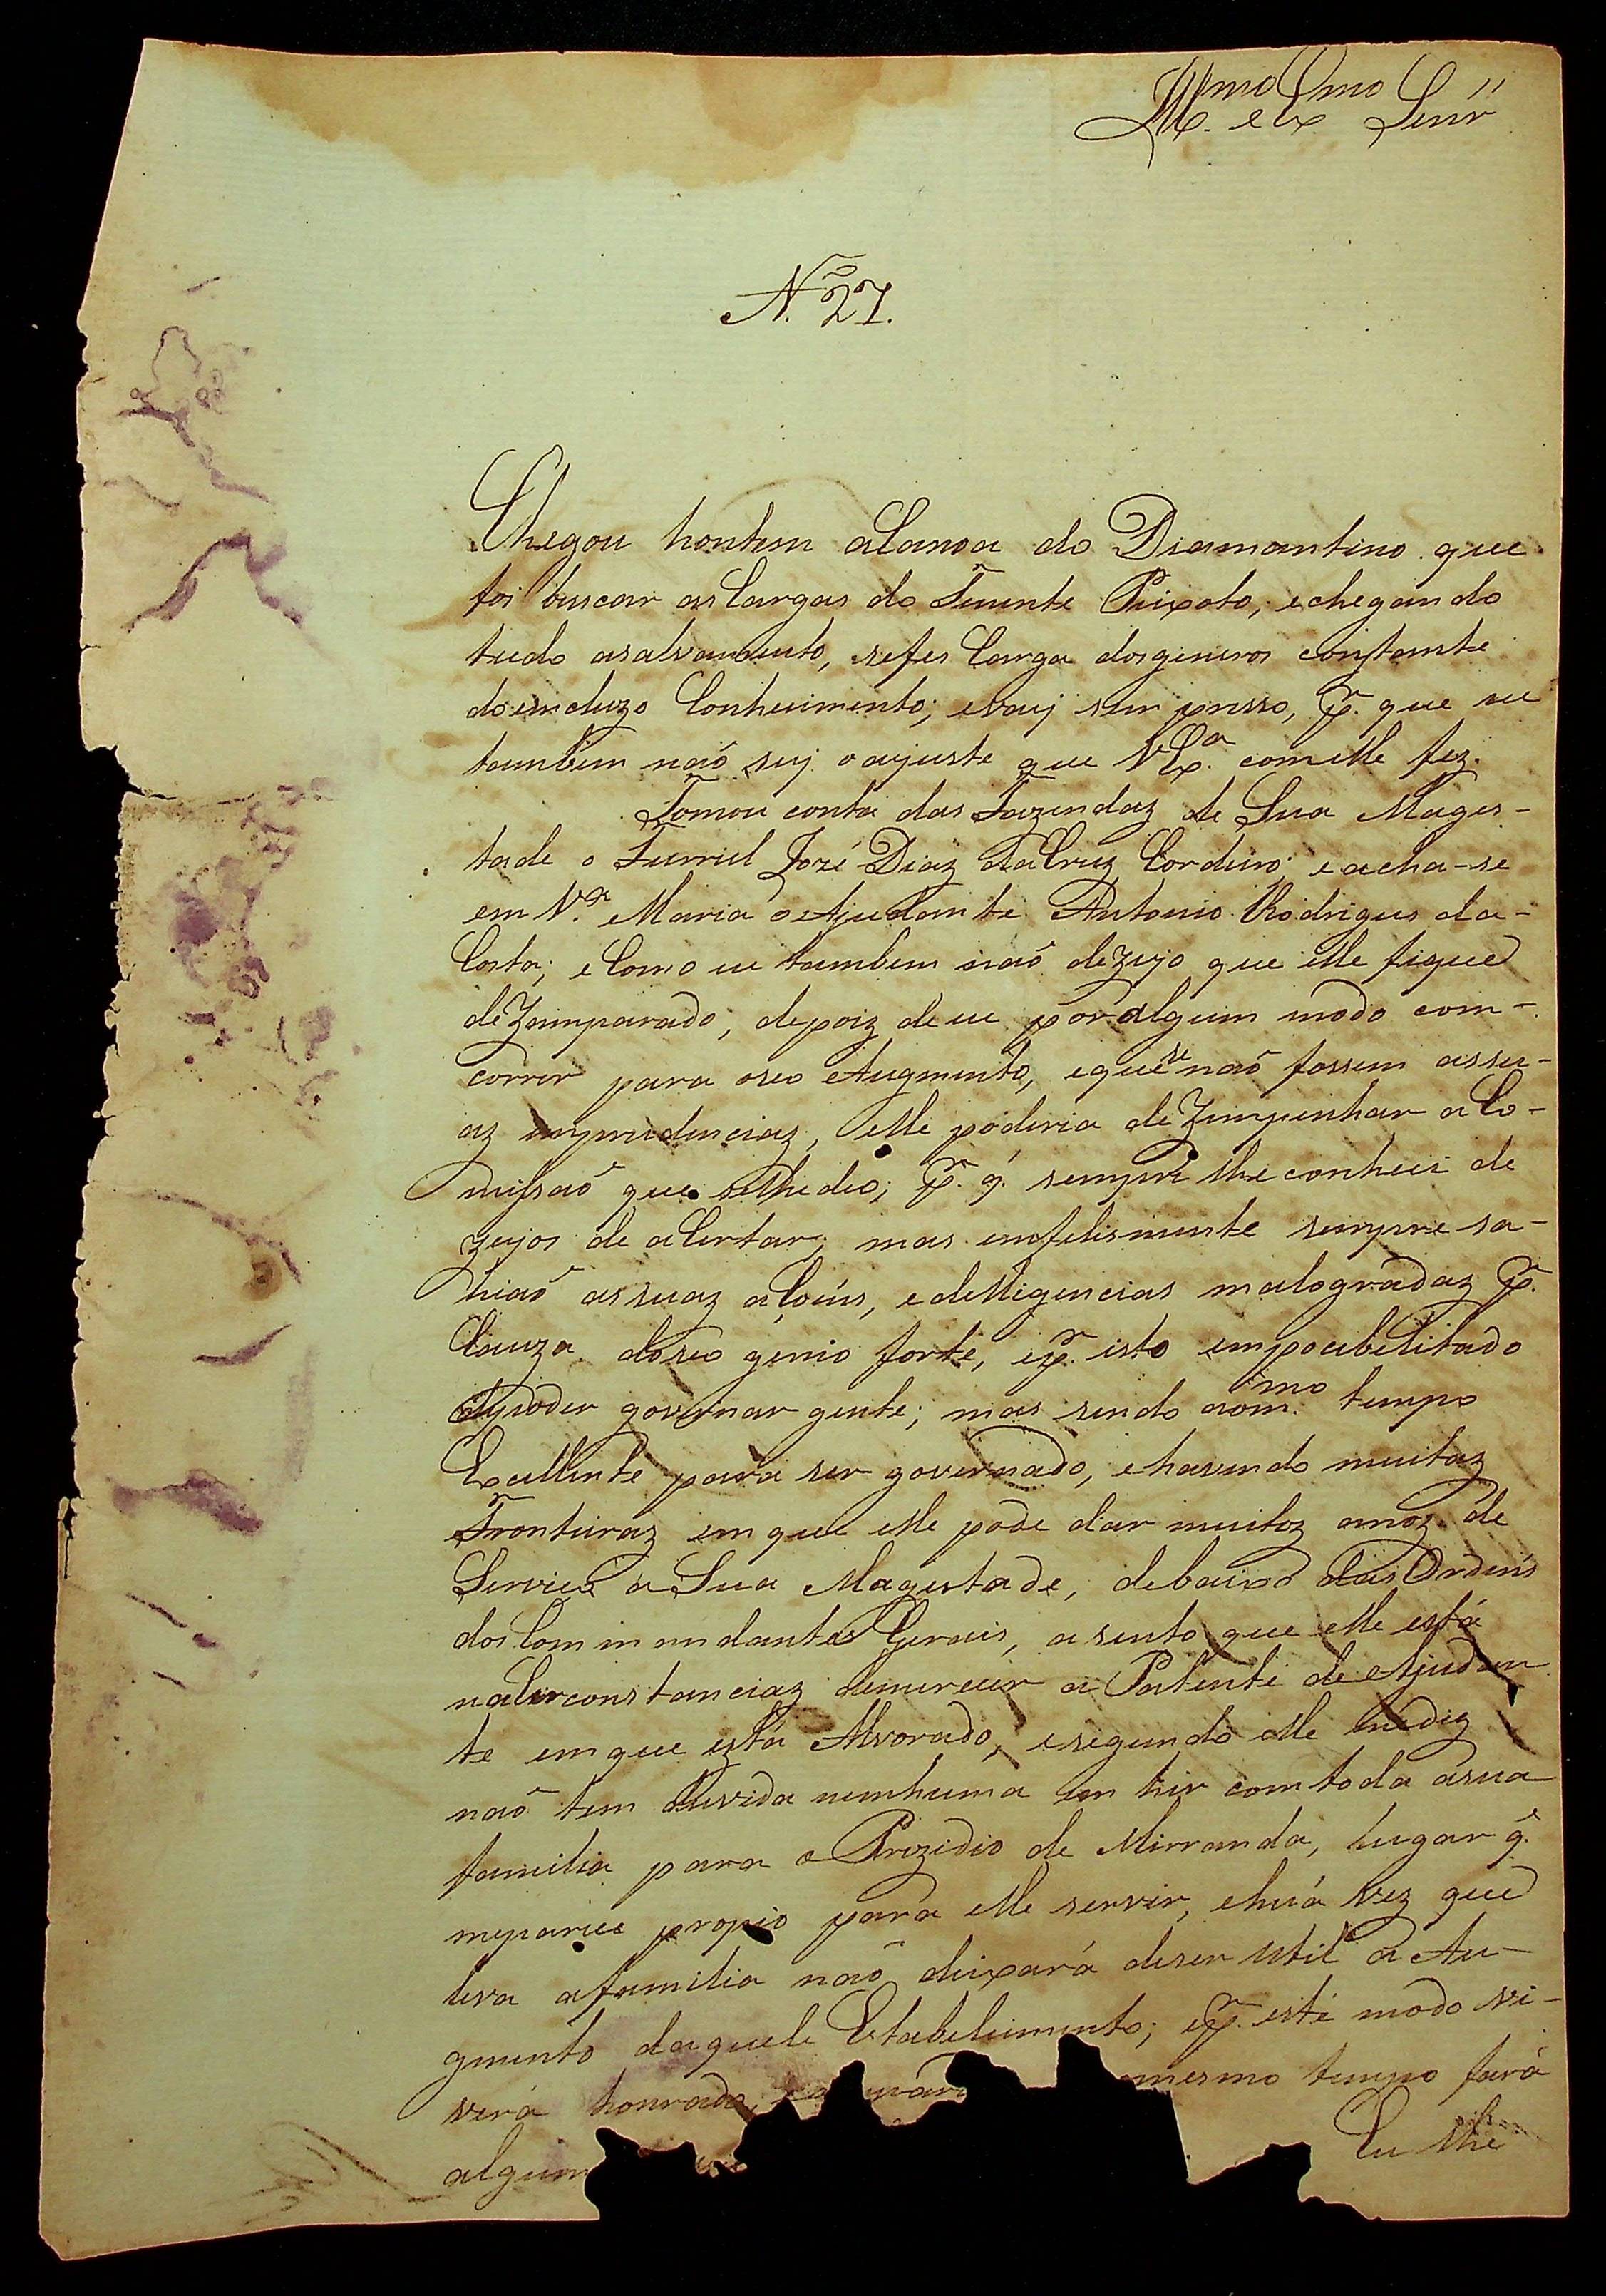 Ill.mo e Ex.mo Senr.
N.º 27.
Chegou hontem aCanoa do Diamantino que
foi buscar asCargas do Tenente Peixoto, echegando
tudo asalvamento, sefes Carga dosgeneros constante
doemcluzo Conhecimento; evaij sem presso, p.r que eu
tambem naõ seij oajuste que VEx.a comelle fez.
Tomou conta das Fazendaz de Sua Mages-
tade o Furriel Jozé Diaz daCruz Cordeiro; eacha-se
em V.a Maria oAjudante Antonio Rodrigues da-
Costa; eComo eu tambem naõ dezejo que elle fique
deZamparado, depoiz deeu por algum modo com-
correr para oseo Augmento, eque se naõ fossem assu-
az imprudenciaz, elle poderia deZempenhar aCo-
missaõ que selhedeo; p.r q.' sempre lhe conheci de
zejos de aCertar; mas emfelismente sempre sa-
hiaõ assuaz açoens, edelligencias malogradaz p.r
Cauza doseo genio forte, ep.r isto empocibelitado
depoder governar gente; mas sendo aom.mo tempo
Excellente para ser governado, ehavendo muitaz
Fronteiraz em que elle pode dar muitoz anoz de
Servico a Sua Magestade, debaixo das Ordens
dos Commendantes Geraes, asento que elle está
naCirconstanciaz demerecer a Patente de Ajudan
te emque está Alvorado, esegundo elle medig
naõ tem duvida nemhuma em hir comtoda asua
familia para o Prezidio de Mirranda, lugar q.'
meparece propio para elle servir, ehuã vez que
leva afamilia naõ deixará deser util a Au-
gmento daquele Estabelecimento; ep.r este modo vi-
verá honrado, mesmo tempo fará
algum Eu lhe